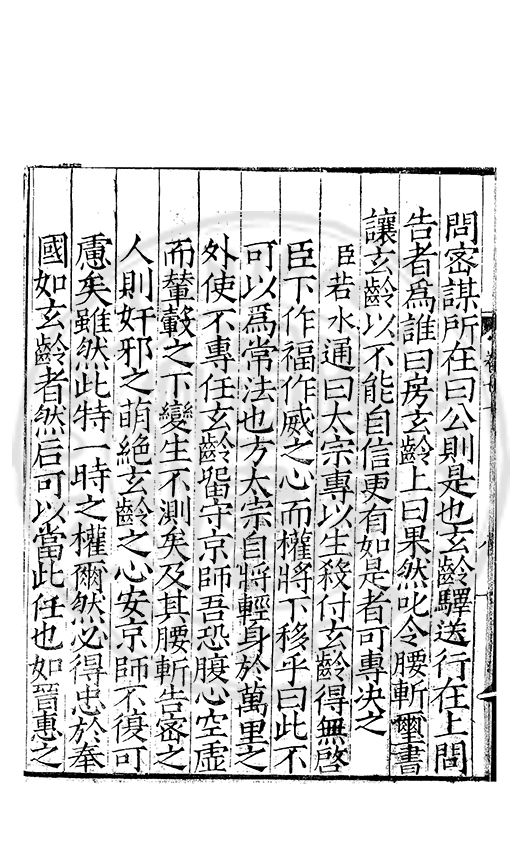 問密謀所在曰公則是也玄齡驛送行在上問
告者爲誰曰房玄齡上曰果然叱令腰斬璽書
讓玄齡以不能自信更有如是者可專决之
臣若水通曰太宗專以生殺付玄齡得無啓
臣下作福作威之心而權將下移乎曰此不
可以爲常法也方太宗自將輕身於萬里之
外使不專任玄齡畱守京師吾恐腹心空虛
而輦轂之下變生不測矣及其腰斬告密之
人則奸邪之萌絕玄齡之心安京師不復可
慮矣雖然此特一時之權爾然必得忠於奉
國如玄齡者然后可以當此任也如晉惠之